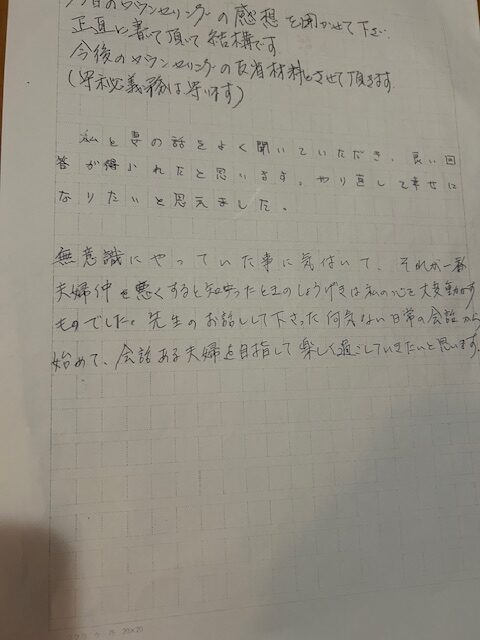 今日のカウンセリングの感想を聞かせて下さい.
正直に書て頂いて結構です
今後のカウンセリングの反省材料とさせて頂きます
(守秘義務は守ります)
私と妻の話をよく聞いていただき、良い回
答が得られたと思います。やり直して幸せに
なりたいと思えました。
無意識にやっていた事に気付いて、それが一番
夫婦仲を悪くすると知ったときのしょうげきは私の心を大変動かす
ものでした。先生のお話しして下さった何気ない日常の会話から
始めて、会話ある夫婦を目指して楽しく過ごしていきたいと思います。
20×20